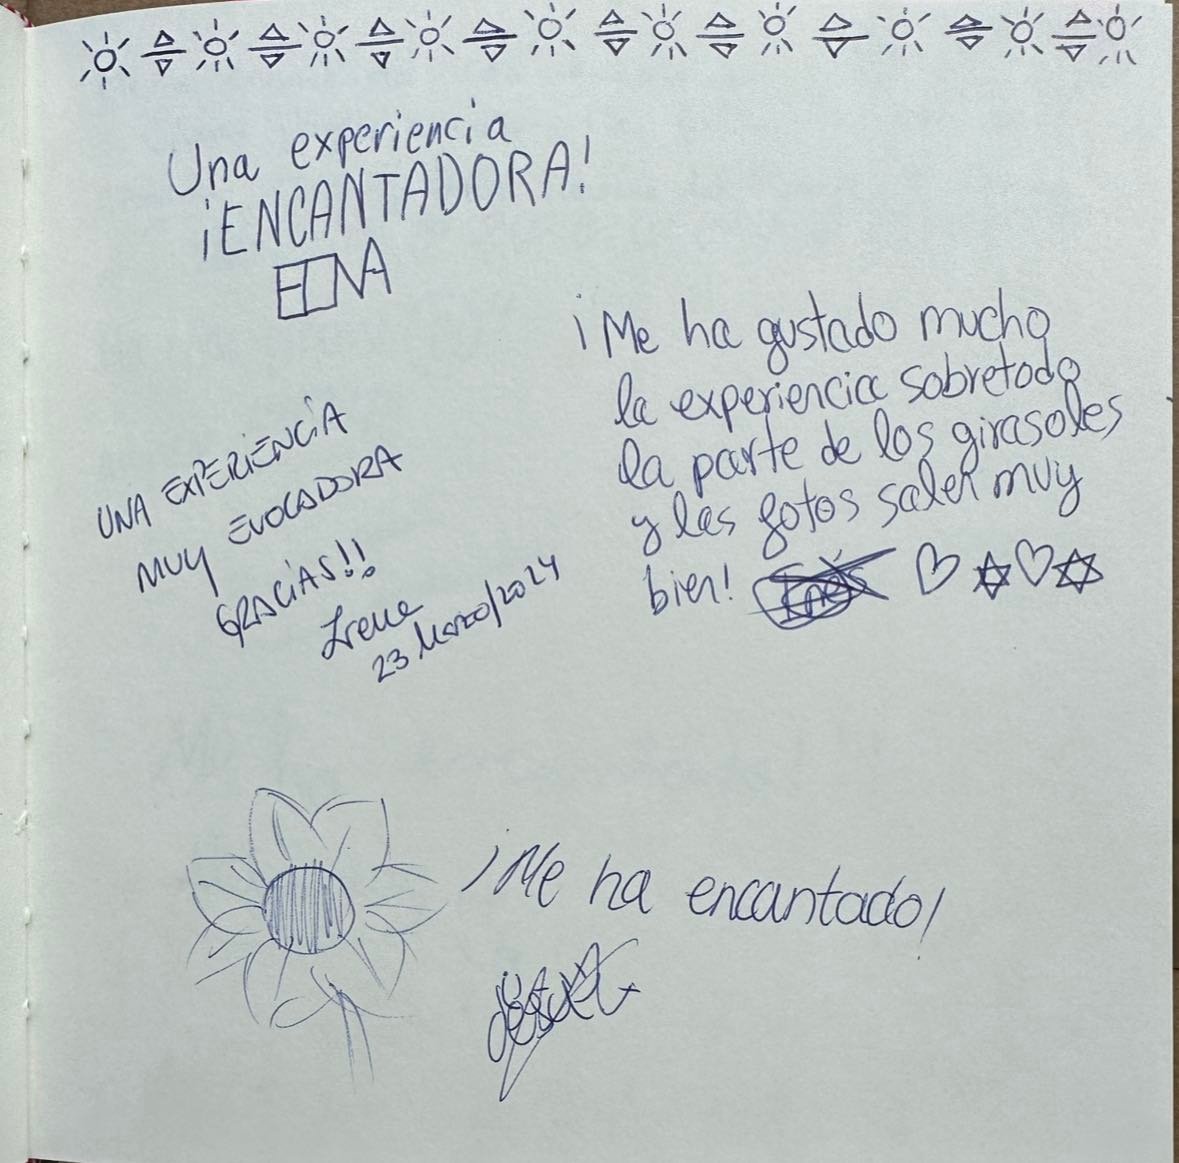 Una experiencia
¡ENCANTADORA!
¡Me ha gustado mucho
la experiencia sobretodo
la parte de los girasoles
y las fotos salen muy
bien! Inés
UNA EXPERIENCIA
MUY EVOCADORA
GRACIAS!!
Irene
23 Marzo/2024
¡Me ha encantado!